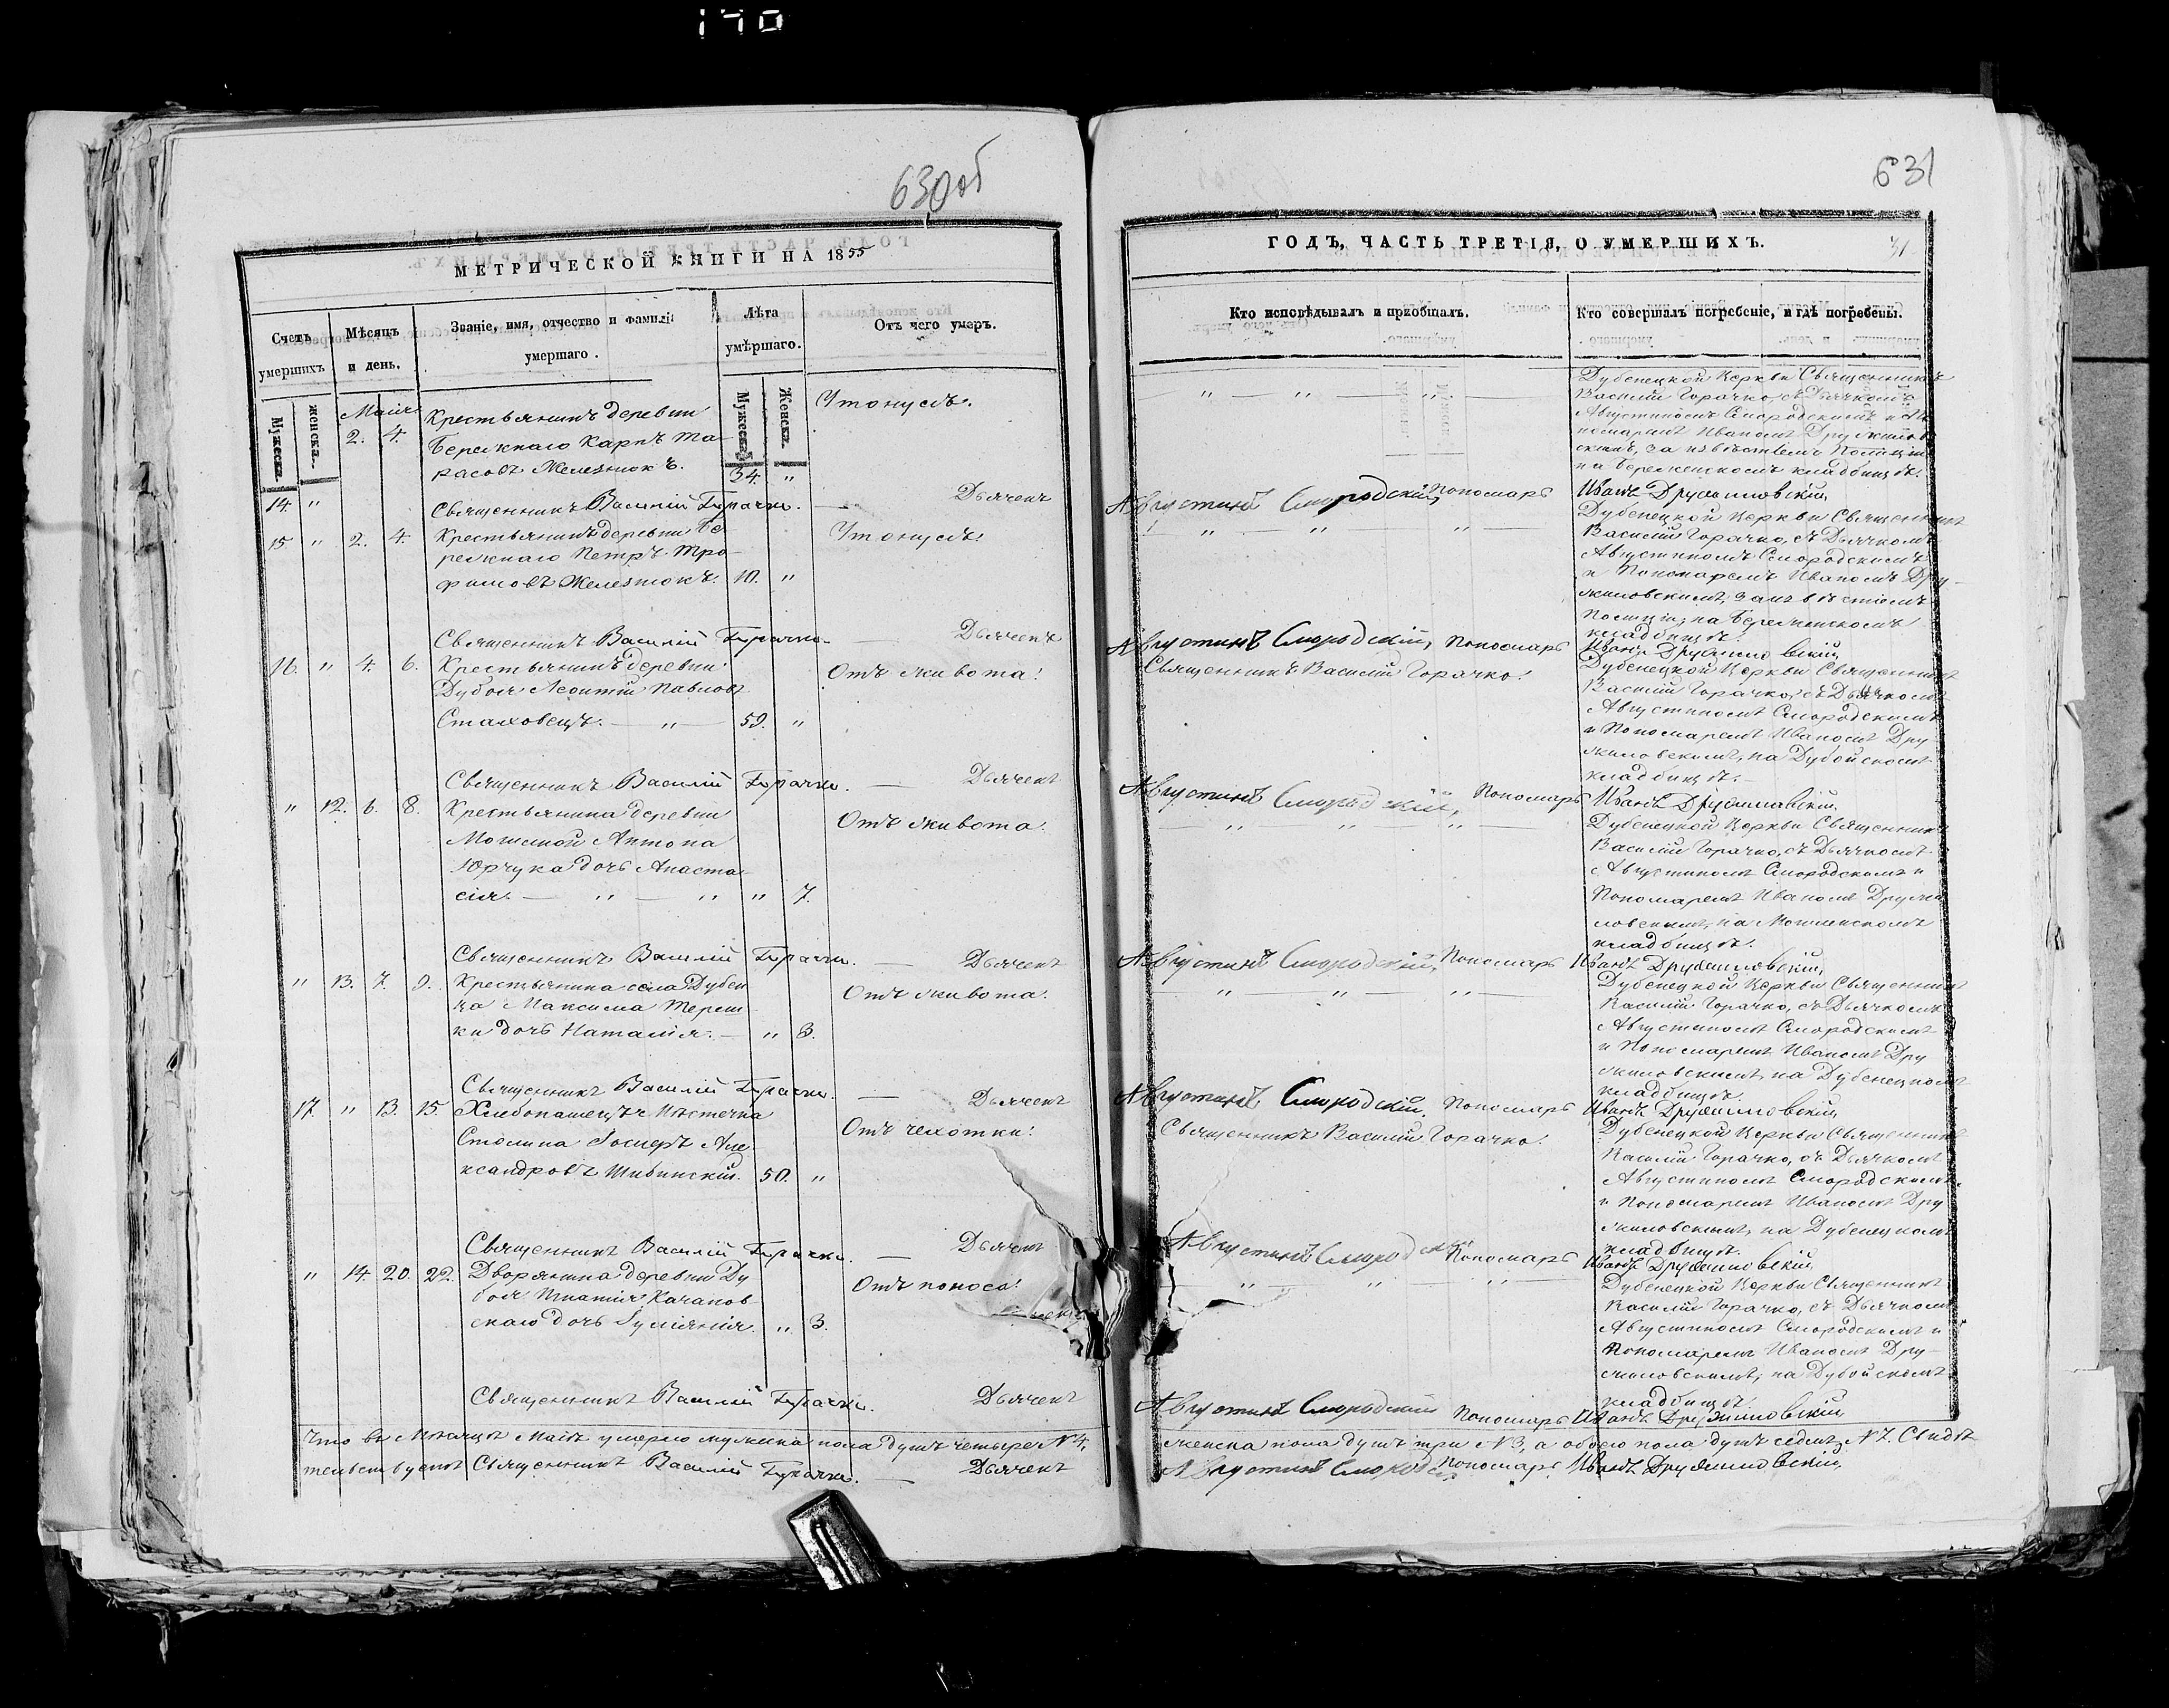 170
630об
МЕТРИЧЕСКОЙ КНИГИ НА 1855
Счетъ умершихъ
Мѣсяцъ и день.
Званіе, имя, отчество и фамилія умершаго.
Лѣта умѣршаго.
Отъ чего умеръ.
Мужеска.
женска.
Мужеска.
Женска.
Маія
14. " 2. 4. Крестьянинъ деревни
Бережнаго Карпъ Та-
расовъ Железнюкъ. 34. " Утонулъ.
Священникъ Василій Горачко. — Дьячекъ
15 " 2. 4. Крестьянинъ деревни Бе
режнаго Петръ Тро-
фимовъ Железнюкъ. 10. " Утонулъ.
Священникъ Василій Горачко. — Дьячекъ
16. " 4. 6. Крестьянинъ деревни
Дубоя Леонтій Павловъ
Сталховецъ. — " — 59. " Отъ живота.
Священникъ Василій Горачко. — Дьячекъ
" 12. 6. 8. Крестьянина деревни
Антона
Юрчука дочь Анаста-
сія. — " — " " 7. Отъ живота.
Священникъ Василій Горачко. — Дьячекъ
" 13. 7. 9. Крестьянина села Дубен
ца Максима Тереш-
ки дочь Наталія. — " 3. Отъ живота.
Священникъ Василій Горачко. — Дьячекъ
17. " 13. 15. Хлебопашецъ Мѣстечка
Столина Іосифъ Але
ксандровъ 50. " Отъ чехотки.
Священникъ Василій Горачко. — Дьячекъ
" 14. 20. 22. Дворянина деревни Ду
боя Игнатія Качанов-
скаго дочь " 3. Отъ поноса.
Священникъ Василій Горачко. Дьячекъ
Что въ Мѣсяцѣ Маіѣ умерло мужеска пола душъ четыре №4,
тельствуемъ Священникъ Василій Горачко. — Дьячекъ
631
ГОДЪ, ЧАСТЬ ТРЕТІЯ, О УМЕРШИХЪ.
31
Кто исповѣдывалъ и пріобщалъ.
Кто совершалъ погребеніе, и гдѣ погребены.
" — " — " —
Дубенецкой Церкви Священникъ
Василій Горачко, съ Дьячкомъ
Августиномъ Смородскимъ и По
номаремъ Иваномъ Дружиловскимъ, за извѣстіемъ Полиціи
на Береженскомъ кладбищѣ.
Августинъ Смородскій, Пономарь Иванъ Дружиловскій,
" " " —
Дубенецкой Церкви Священникъ
Василій Горачко, съ Дьячкомъ
Августиномъ Смородскимъ
и Пономаремъ Иваномъ Дру-
жиловскимъ, за извѣстіемъ
Полиціи, на Береженскомъ
кладбищѣ.
Августинъ Смородскій, Пономарь Иванъ Дружиловскій,
Священникъ Василій Горачко.
Дубенецкой Церкви Священникъ
Василій Горачко, съ Дьячкомъ
Августиномъ Смородскимъ
и Пономаремъ Иваномъ Дру-
жиловскимъ, на Дубойскомъ
кладбищѣ.
Августинъ Смородскій, Пономарь Иванъ Дружиловскій,
" " " —
Дубенецкой Церкви Священникъ
Василій Горачко, съ Дьячкомъ
Августиномъ Смородскимъ и
Пономаремъ Иваномъ Дружи
ловскимъ, на
кладбищѣ.
Августинъ Смородскій, Пономарь Иванъ Дружиловскій,
" " " —
Дубенецкой Церкви Священникъ
Василій Горачко, съ Дьячкомъ
Августиномъ Смородскимъ
и Пономаремъ Иваномъ Дру
жиловскимъ, на Дубенецкомъ
кладбищѣ.
Августинъ Смородскій, Пономарь Иванъ Дружиловскій,
Священникъ Василій Горачко.
Дубенецкой Церкви Священникъ
Василій Горачко, съ Дьячкомъ
Августиномъ Смородскимъ,
и Пономаремъ Иваномъ Дру
жиловскимъ, на Дубенецкомъ
кладбищѣ.
Августинъ Смородскій Пономарь Иванъ Дружиловскій,
" " " —
Дубенецкой Церкви Священникъ
Василій Горачко, съ Дьячкомъ
Августиномъ Смородскимъ и
Пономаремъ Иваномъ Дру-
жиловскимъ, на Дубойскомъ
кладбищѣ.
Августинъ Смородскій Пономарь Иванъ Дружиловскій
женска пола душъ три №3, а обоего пола душъ седмь №7. Свидѣ
Августинъ Смородскій Пономарь Иванъ Дружиловскій,